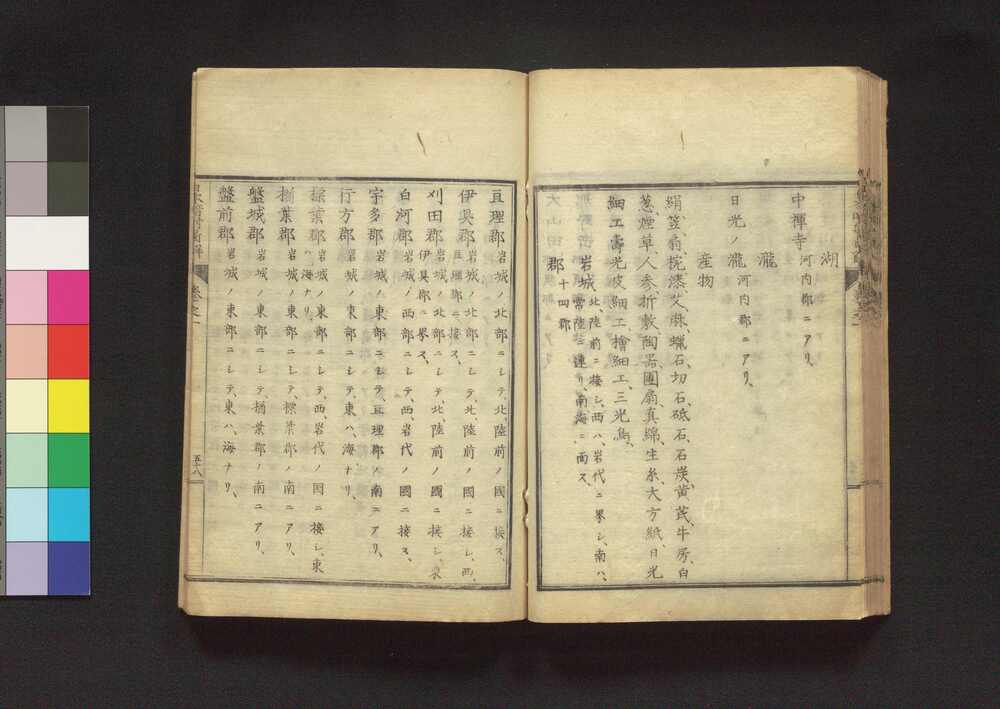 湖
中禅寺 河内郡ニアリ、
瀧
日光ノ瀧 河内郡ニアリ、
産物
絹、笠、扇、椀、漆、艾、麻、蝋石、切石、砥石、石炭、黄芪、牛房、白
葱、煙草、人参、折敷、陶器、團扇、真綿、生糸、大方紙、日光
細工、壽光皮細工、檜細工、三光鳥、
岩城 北陸前ニ接シ、西ハ岩代ニ界シ、南ハ、
常陸ニ連リ、南海ニ面ス、
郡 十四郡
亘理郡 岩城ノ北部ニシテ、北、陸前ノ國ニ接ス、
伊具郡 岩城ノ北部ニシテ、北、陸前ノ國ニ接シ、西、
亘理郡ニ接ス、
刈田郡 岩城ノ北部ニシテ、北、陸前ノ國ニ接シ、東
伊具郡ニ界ス、
白河郡 岩城ノ西部ニシテ、西岩代ノ國ニ接ス、
宇多郡 岩城ノ東部ニシテ、亘理郡ノ南ニアリ、
行方郡 岩城ノ東部ニシテ、東ハ、海ナリ、
標葉郡 岩城ノ東部ニシテ、西、岩代ノ國ニ接シ、東
ハ、海ナリ、
楢葉郡 岩城ノ東部ニシテ、標葉郡ノ南ニアリ、
盤城郡 岩城ノ東部ニシテ、楢葉郡ノ南ニアリ、
盤前郡 岩城ノ東部ニシテ、東ハ、海ナリ、
巻之一
五十八